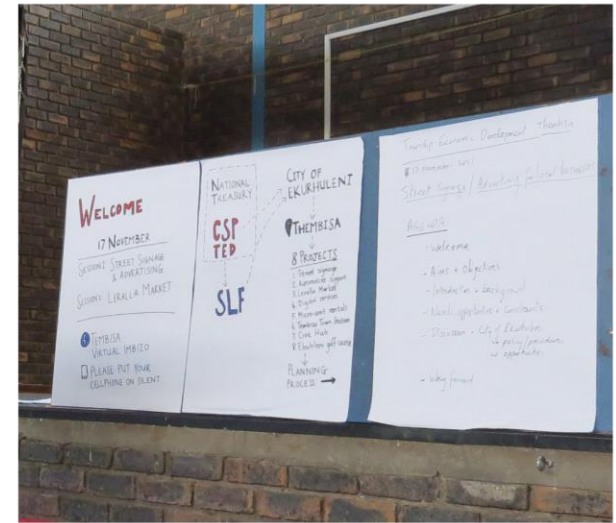 WELCOME
17 NOVEMBER
SESSION: STREET SIGNAGE
& ADVERTISING
SESSION: LERALLA MARKET
TEMBISA
VIRTUAL IMBIZO
PLEASE PUT YOUR
CELLPHONE ON SILENT
NATIONAL
TREASURY
CSP
TED
SLF
CITY OF
EKURHULENI
THEMBISA
8 PROJECTS
1. Street signage
2. Automotive support
3. Leralla Market
4. Digital services
5. Micro-unit rentals
6. Tembisa Town
7. Civic Hub
8. Ekurhuleni golf course
PLANNING
PROCESS →
Township Economic Development Thembisa
17 November 2021
Street Signage / Advertising for local businesses
AGENDA
- Welcome
- Aims + Objectives
- Introduction + background
- Needs, opportunities + Constraints
- Discussion - City of Ekurhuleni
↳ policy/procedures
↳ opportunities
- Way forward